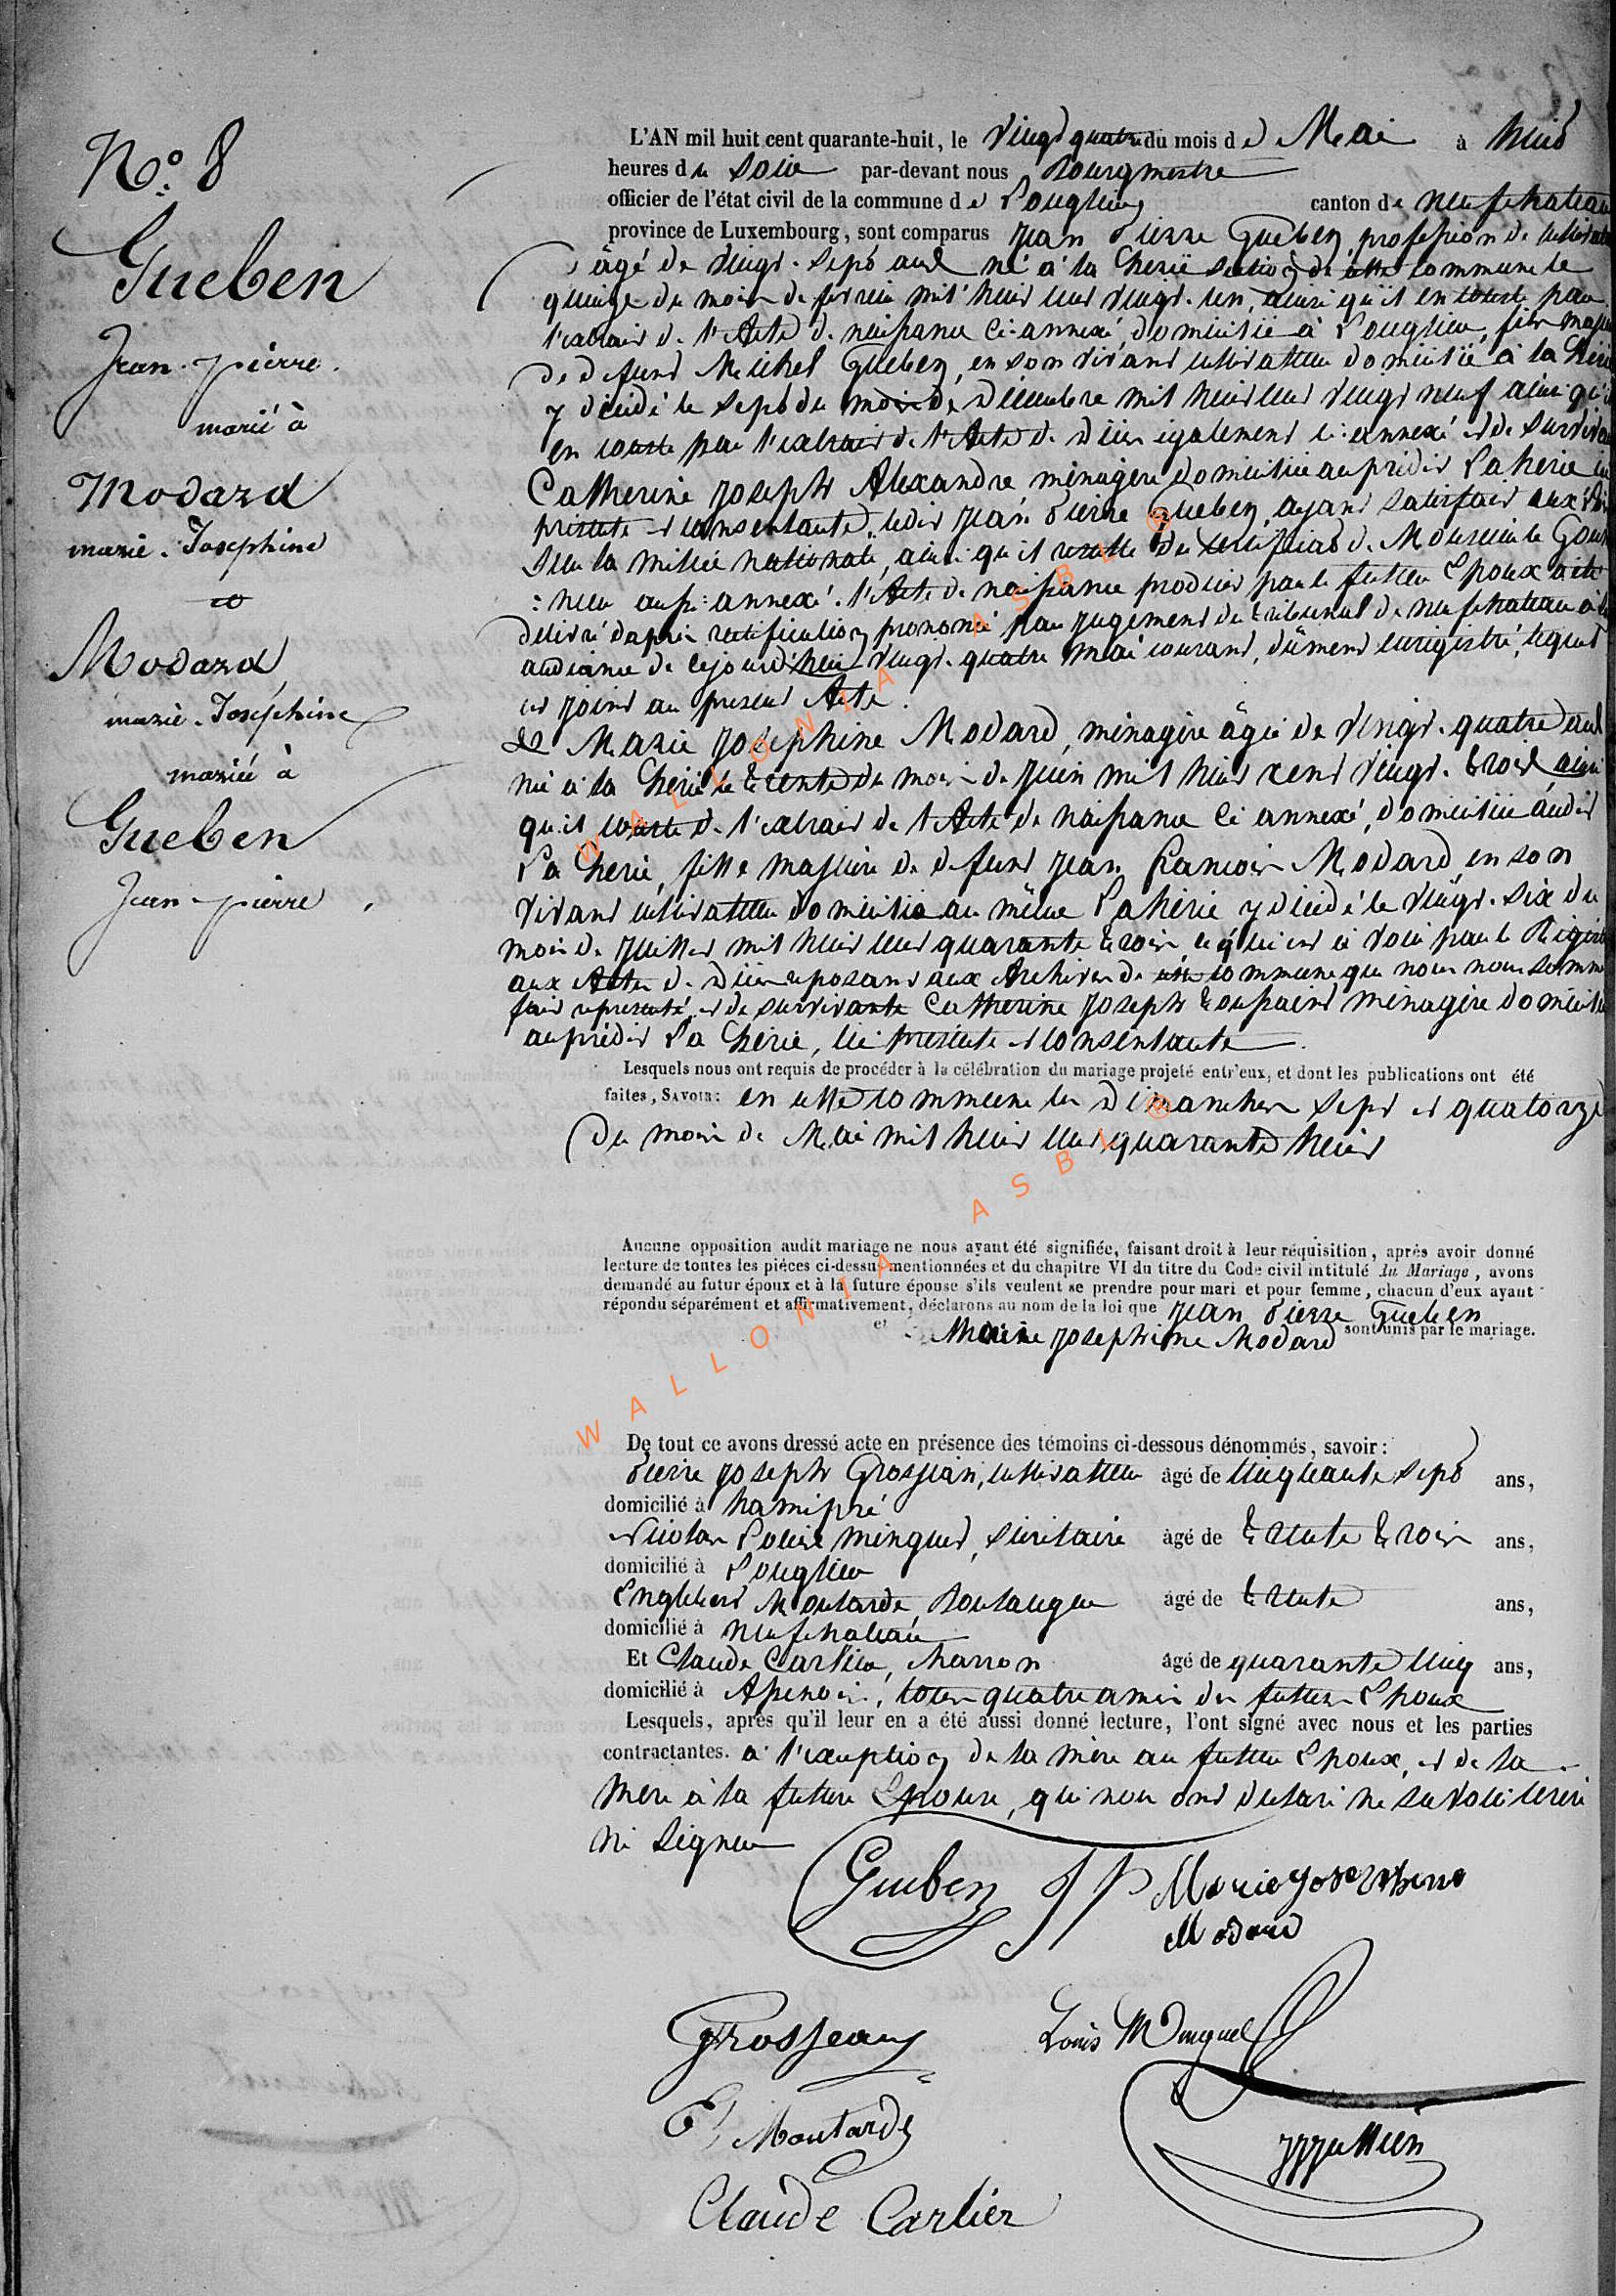 N.° 8
Gueben
Jean-pierre.
marié à
Modard
marie-Josephine
et
Modard
marie-Josephine
mariée à
Gueben
Jean-pierre
L'AN mil huit cent quarante-huit, le vingt quatre du mois de Mai à huit
heures du Soir par-devant nous Bourgmestre
officier de l'état civil de la commune de Longlier canton de neufchateau
province de Luxembourg, sont comparus Jean Pierre Gueben profession de
âgé de vingt-sept ans né à la Cherie section de cette commune le
quinze du mois de fevrier mil huit cent vingt-un, ainsi qu'il en conste par
l'extrait de l'Acte de naissance ci-annexé, domicilié à Longlier, fils majeur
de defunt Michel Gueben, en son vivant cultivateur domicilié à la Cherie
y décédé le sept du mois de Décembre mil huit cent vingt neuf ainsi qu'il
en conste par l'extrait de l'Acte de décès egalement ci-annexé et de survivante
Catherine Joseph Alexandre ménagère domiciliée au prédit La herie ici
presente et consentante, ledit Jean Pierre Gueben, ayant satisfait aux
sur la milice nationale, ainsi qu'il resulte du certificat de Monsieur le Gouver
:neur aussi annexé. l'Acte de naissance produit par le futur Epoux a été
délivré daprès rectification prononcé par jugement du tribunal de neufchateau à
audiance de cejourd'huit vingt-quatre mai courant, dûment enregistré, lequel
est joint au present Acte.
Et Marie Josephine Modard, ménagère âgée de vingt-quatre ans
née à la Cherie le trente du mois de Juin mil huit cent vingt-trois ainsi
qu'il conste de l'extrait de l'Acte de naissance ci annexé, domiciliée audit
La Cherie, fille majeure de defunt Jean francois Modard, en son
vivant cultivateur domicilié au même La hérie y décédé le vingt-six du
mois de Juillet mil huit cent quarante trois, ce qui est à voir par le Régistre
aux Actes de décès reposant aux Archives de cette commune que nous nous sommes
fait representé, et de survivante Catherine Joseph Toussaint ménagère domiciliée
au prédit La Chérie, ici presente et consentante
Lesquels nous ont requis de procéder à la célébration du mariage projeté entr'eux, et dont les publications ont été
faites, SAVOIR: en cette commune les Dimanches sept et quatorze
du mois de Mai mil huit cent quarante huit
Aucune opposition audit mariage ne nous ayant été signifiée, faisant droit à leur réquisition, après avoir donné
lecture de toutes les pièces ci-dessus mentionnées et du chapitre VI du titre du Code civil intitulé du Mariage, avons
demandé au futur époux et à la future épouse s'ils veulent se prendre pour mari et pour femme, chacun d'eux ayant
répondu séparément et affirmativement, déclarons au nom de la loi que Jean Pierre Gueben
et Marie Josephine Modard sont unis par le mariage.
De tout ce avons dressé acte en présence des témoins ci-dessous dénommés, savoir:
Pierre Joseph Grosjean, cultivateur âgé de cinquante sept ans,
domicilié à hamipré
Nicolas Louis Minguet, Sécrétaire âgé de trente trois ans,
domicilié à Longlier
Englebert Moutarde, Boulanger âgé de trente ans,
domicilié à neufchateau
Et Claude Carlier, charron âgé de quarante cinq ans,
domicilié à Assenois, tous quatre amis des futurs Epoux
Lesquels, après qu'il leur en a été aussi donné lecture, l'ont signé avec nous et les parties
contractantes. à l'exception de la mère au futur Epoux, et de la
mere à la future Epouse, qui nous ont declaré ne savoir écrire
ni signer
Gueben J P Marie Josephine
Modard
Grosjean Louis Minguet
E Moutarde
Claude Carlier
WALLONIA ASBL ®
WALLONIA ASBL ®